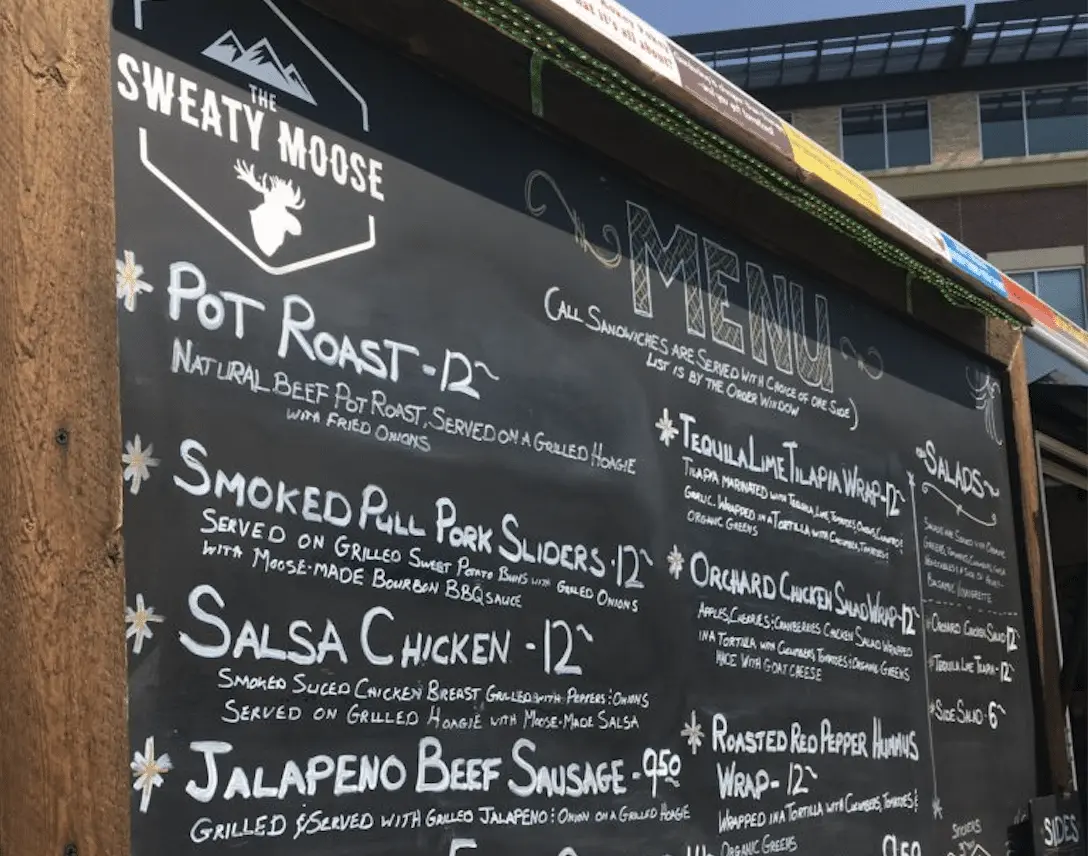 THE
SWEATY MOOSE
MENU
(ALL SANDWICHES ARE SERVED WITH CHOICE OF ONE SIDE)
LIST IS BY THE ORDER WINDOW
POT ROAST - 12
NATURAL BEEF POT ROAST, SERVED ON A GRILLED HOAGIE
WITH FRIED ONIONS
SMOKED PULL PORK SLIDERS - 12
SERVED ON GRILLED SWEET POTATO BUNS WITH GRILLED ONIONS
WITH MOOSE-MADE BOURBON BBQ SAUCE
SALSA CHICKEN - 12
SMOKED SLICED CHICKEN BREAST GRILLED WITH PEPPERS & ONIONS
SERVED ON GRILLED HOAGIE WITH MOOSE-MADE SALSA
JALAPENO BEEF SAUSAGE - 9.50
GRILLED & SERVED WITH GRILLED JALAPENO & ONION ON A GRILLED HOAGIE
TEQUILA LIME TILAPIA WRAP - 12
TILAPIA MARINATED WITH TEQUILA, LIME, TOMATOES, ONIONS, CILANTRO &
GARLIC. WRAPPED IN A TORTILLA WITH CUCUMBER, TOMATOES &
ORGANIC GREENS
ORCHARD CHICKEN SALAD WRAP - 12
APPLES, CHERRIES & CRANBERRIES CHICKEN SALAD WRAPPED
IN A TORTILLA WITH CUCUMBERS TOMATOES & ORGANIC GREENS
MADE WITH GOAT CHEESE
ROASTED RED PEPPER HUMMUS
WRAP - 12
WRAPPED IN A TORTILLA WITH CUCUMBERS, TOMATOES &
ORGANIC GREENS
9.50
SALADS
SALADS ARE SERVED WITH ORGANIC
GREENS, TOMATOES, CUCUMBERS,
VEGETABLES & A SIDE OF HONEY-
BALSAMIC VINAIGRETTE
ORCHARD CHICKEN SALAD 12
TEQUILA LIME TILAPIA - 12
SIDE SALAD - 6
STICKERS
SIDES
what it's all about!